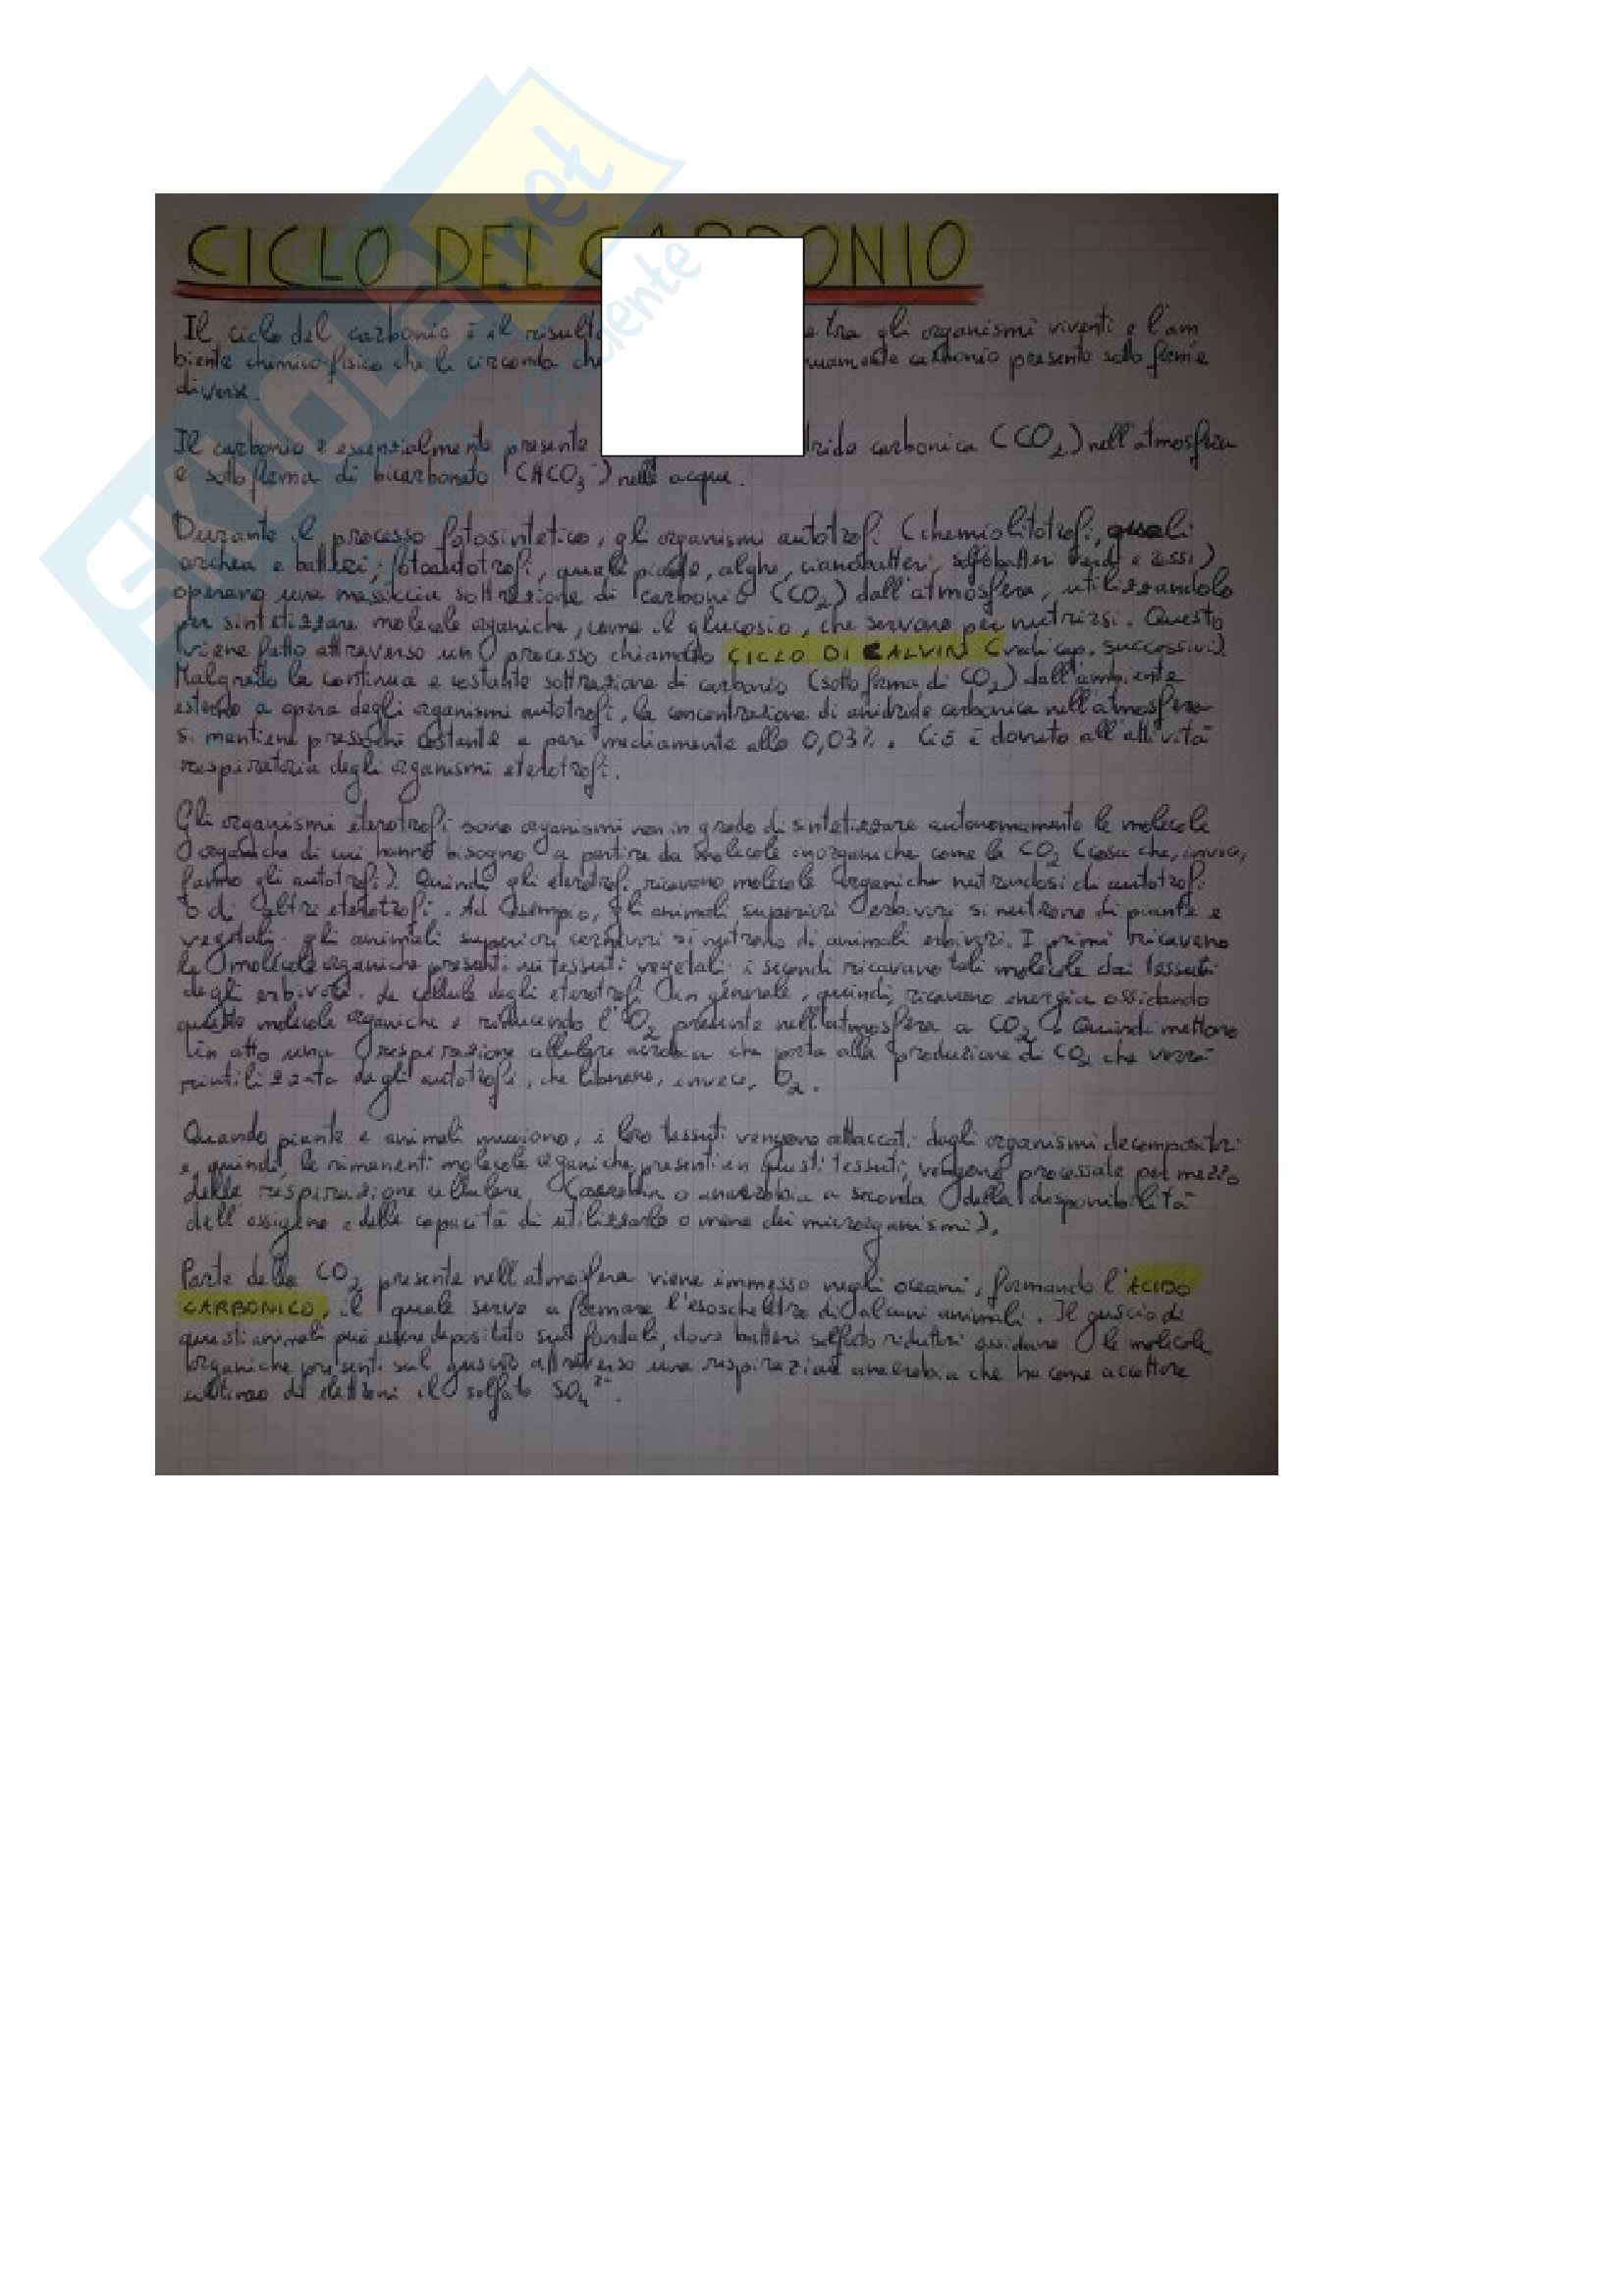 CICLO DEL CA ONIO
Il ciclo del carbonio è il risult e tra gli organismi viventi e l'am
biente chimico-fisico che li circonda che uamente carbonio presente sotto forme
diverse.
Il carbonio è essenzialmente presente dride carbonica (CO2) nell'atmosfera
e sotto forma di bicarbonato (HCO3-) nelle acque.
Durante il processo fotosintetico, gli organismi autotrofi (chemiolitotrofi, quali
archea e batteri; fotoautotrofi, quali piante, alghe, cianobatteri, solfobatteri verdi e rossi)
operano una massiccia sottrazione di carbonio (CO2) dall'atmosfera, utilizzandolo
per sintetizzare molecole organiche, come il glucosio, che servono per nutrirsi. Questo
viene fatto attraverso un processo chiamato CICLO DI CALVIN (vedi cap. successivi).
Malgrado la continua e costante sottrazione di carbonio (sotto forma di CO2) dall'ambiente
esterno a opera degli organismi autotrofi, la concentrazione di anidride carbonica nell'atmosfera
si mantiene pressoché costante e pari mediamente allo 0,03%. Ciò è dovuto all'attività
respiratoria degli organismi eterotrofi.
Gli organismi eterotrofi sono organismi non in grado di sintetizzare autonomamente le molecole
organiche di cui hanno bisogno a partire da molecole inorganiche come la CO2 (cosa che, invece,
fanno gli autotrofi). Quindi gli eterotrofi ricavano molecole organiche nutrendosi di autotrofi
o di altri eterotrofi. Ad esempio, gli animali superiori erbivori si nutrono di piante e
vegetali; gli animali superiori carnivori si nutrono di animali erbivori. I primi ricavano
le molecole organiche presenti nei tessuti vegetali; i secondi ricavano tali molecole dai tessuti
degli erbivori. Le cellule degli eterotrofi in generale, quindi, ricavano energia ossidando
queste molecole organiche e riducendo l'O2 presente nell'atmosfera a CO2. Quindi mettono
in atto una respirazione cellulare aerobia che porta alla produzione di CO2 che verrà
riutilizzata dagli autotrofi, che liberano, invece, O2.
Quando piante e animali muoiono, i loro tessuti vengono attaccati dagli organismi decompositori
e, quindi, le rimanenti molecole organiche presenti in questi tessuti, vengono processate per mezzo
della respirazione cellulare (aerobia o anaerobia a seconda della disponibilità
dell'ossigeno e delle capacità di utilizzarlo o meno dei microrganismi).
Parte della CO2 presente nell'atmosfera viene immesso negli oceani, formando l'ACIDO
CARBONICO, il quale serve a formare l'esoscheletro di alcuni animali. Il guscio di
questi animali può essere depositato sui fondali, dove batteri solfato riduttori ossidano le molecole
organiche presenti sul guscio attraverso una respirazione anaerobia che ha come accettore
ultimo di elettroni il solfato SO4 2-.
SKUOLA.net